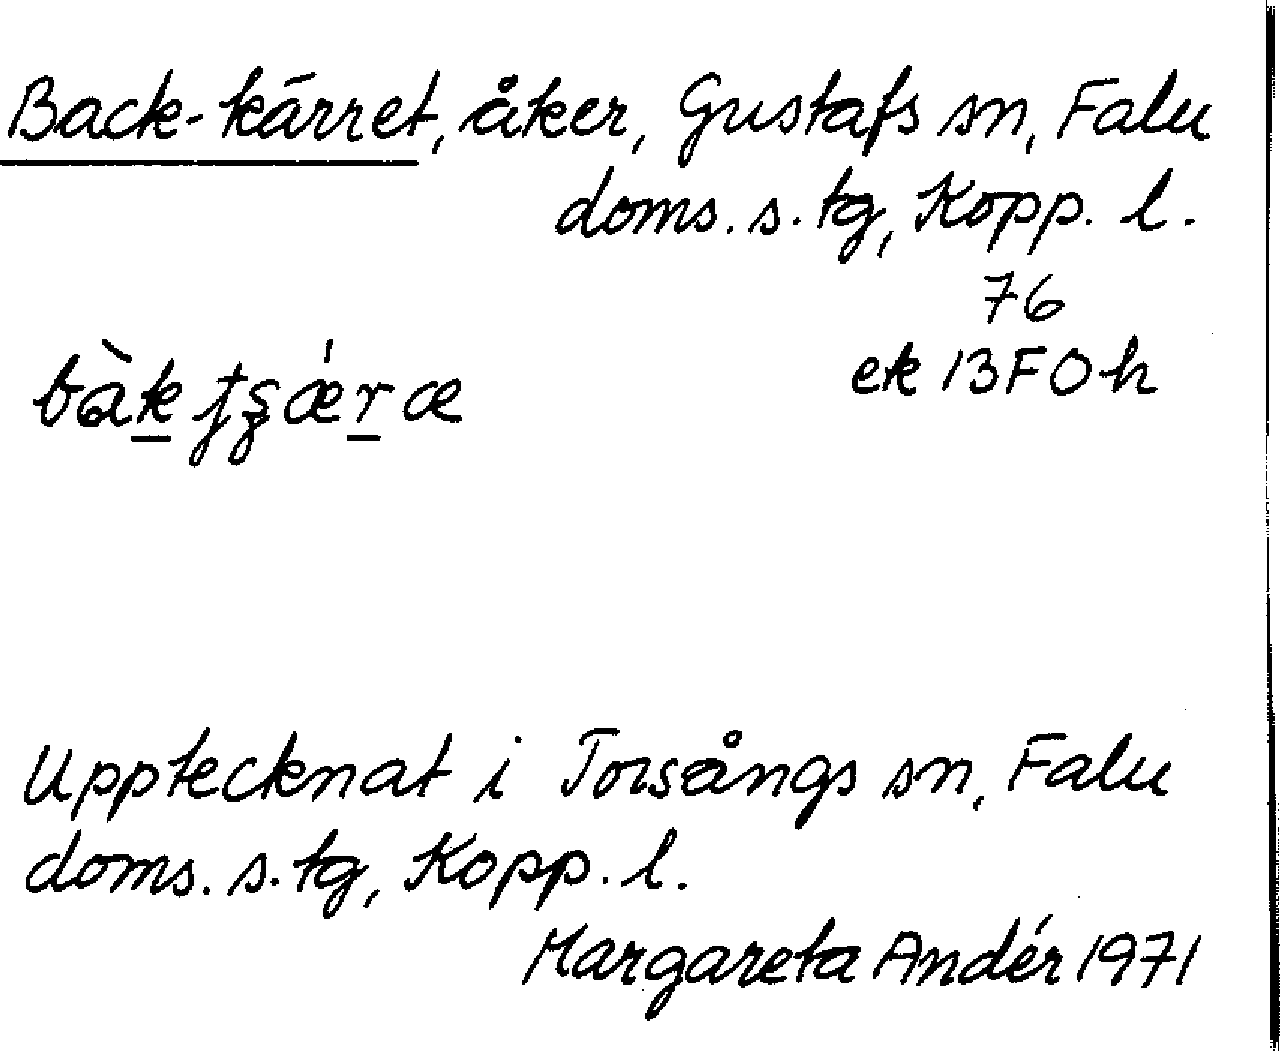 Back-kärret, åker, Gustafs sn, Falu
doms. s. tg, Kopp. l.
76
ek 13F0h
Upptecknat i Torsångs sn, Falu
doms. s. tg, Kopp. l.
Margareta Andér 1971